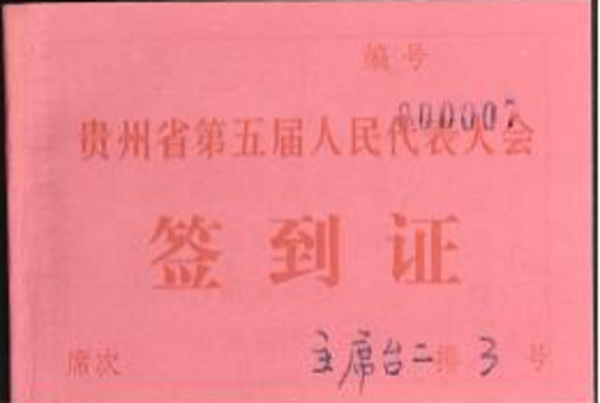 编号
000007
贵州省第五届人民代表大会
签到证
席次 主席台二排3号